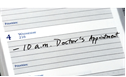 4
- 10 a.m. Doctor's Appointment